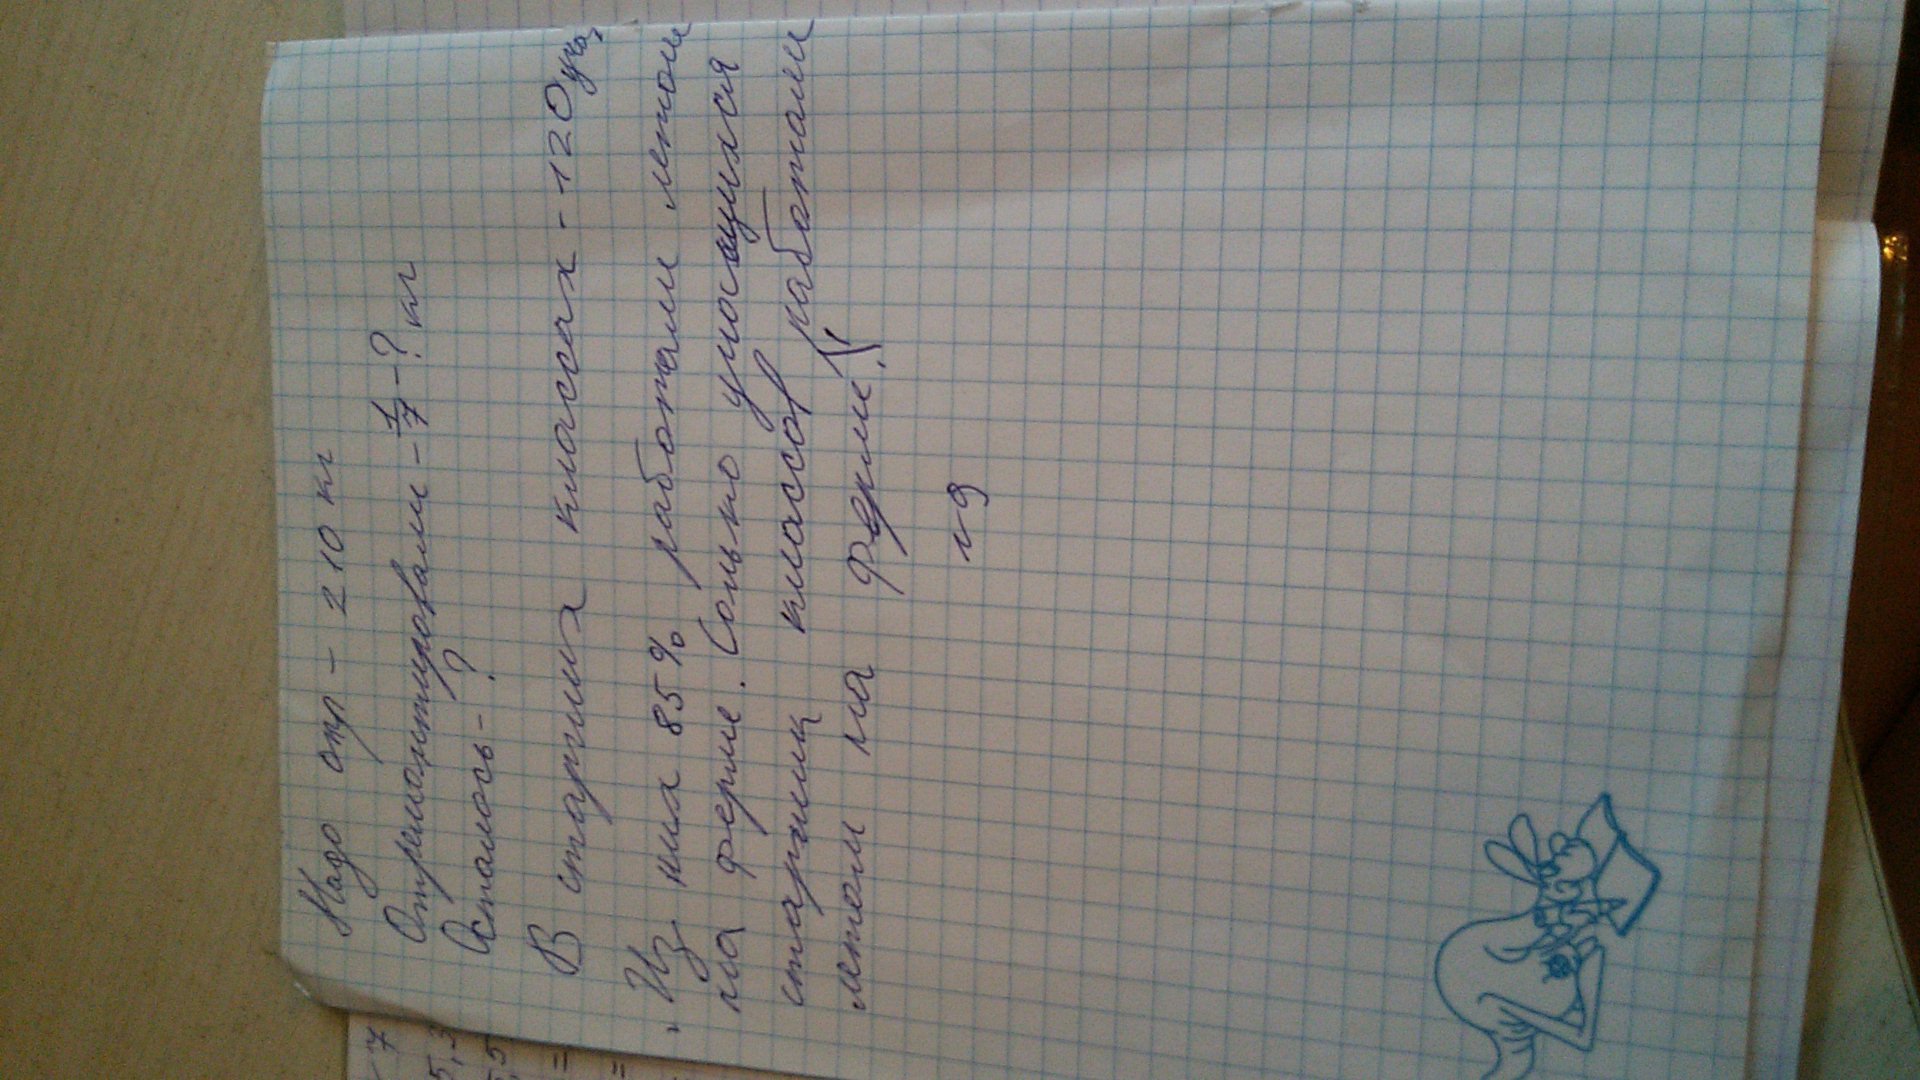 Надо отр - 210 кг
Отремонтировали - 1/7 - ? кг
Осталось - ?
В старших классах - 120 уча,
Из них 85% работали летом
на ферме. Солько учосащихся
старших классов работали
летом на ферме.
7
5,
,5
=
=